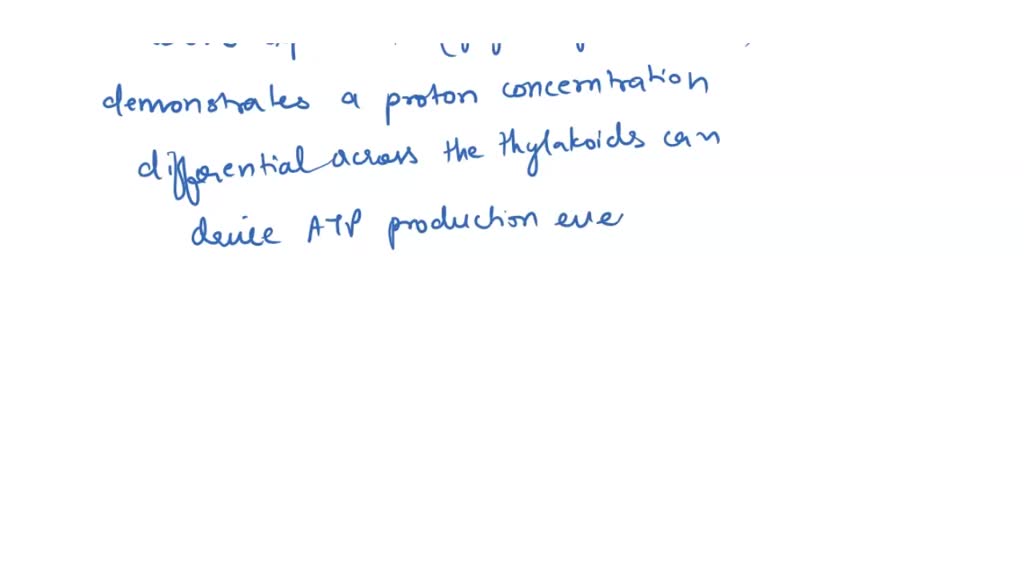 demonstrates a proton concerntration
differential across the thylakoids can
derive ATP production eve